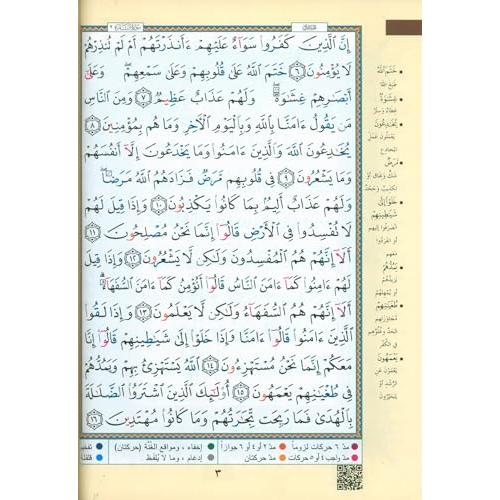 إِنَّ ٱلَّذِينَ كَفَرُوا۟ سَوَآءٌ عَلَيْهِمْ ءَأَنذَرْتَهُمْ أَمْ لَمْ تُنذِرْهُمْ
لَا يُؤْمِنُونَ ٦ خَتَمَ ٱللَّهُ عَلَىٰ قُلُوبِهِمْ وَعَلَىٰ سَمْعِهِمْ ۖ وَعَلَىٰٓ
أَبْصَـٰرِهِمْ غِشَـٰوَةٌ ۖ وَلَهُمْ عَذَابٌ عَظِيمٌ ٧ وَمِنَ ٱلنَّاسِ
مَن يَقُولُ ءَامَنَّا بِٱللَّهِ وَبِٱلْيَوْمِ ٱلْـَٔاخِرِ وَمَا هُم بِمُؤْمِنِينَ ٨
يُخَـٰدِعُونَ ٱللَّهَ وَٱلَّذِينَ ءَامَنُوا۟ وَمَا يَخْدَعُونَ إِلَّآ أَنفُسَهُمْ
وَمَا يَشْعُرُونَ ٩ فِى قُلُوبِهِم مَّرَضٌ فَزَادَهُمُ ٱللَّهُ مَرَضًا ۖ
وَلَهُمْ عَذَابٌ أَلِيمٌۢ بِمَا كَانُوا۟ يَكْذِبُونَ ١٠ وَإِذَا قِيلَ لَهُمْ
لَا تُفْسِدُوا۟ فِى ٱلْأَرْضِ قَالُوٓا۟ إِنَّمَا نَحْنُ مُصْلِحُونَ ١١
أَلَآ إِنَّهُمْ هُمُ ٱلْمُفْسِدُونَ وَلَـٰكِن لَّا يَشْعُرُونَ ١٢ وَإِذَا قِيلَ
لَهُمْ ءَامِنُوا۟ كَمَآ ءَامَنَ ٱلنَّاسُ قَالُوٓا۟ أَنُؤْمِنُ كَمَآ ءَامَنَ ٱلسُّفَهَآءُ ۗ
أَلَآ إِنَّهُمْ هُمُ ٱلسُّفَهَآءُ وَلَـٰكِن لَّا يَعْلَمُونَ ١٣ وَإِذَا لَقُوا۟
ٱلَّذِينَ ءَامَنُوا۟ قَالُوٓا۟ ءَامَنَّا وَإِذَا خَلَوْا۟ إِلَىٰ شَيَـٰطِينِهِمْ قَالُوٓا۟ إِنَّا
مَعَكُمْ إِنَّمَا نَحْنُ مُسْتَهْزِءُونَ ١٤ ٱللَّهُ يَسْتَهْزِئُ بِهِمْ وَيَمُدُّهُمْ
فِى طُغْيَـٰنِهِمْ يَعْمَهُونَ ١٥ أُو۟لَـٰٓئِكَ ٱلَّذِينَ ٱشْتَرَوُا۟ ٱلضَّلَـٰلَةَ
بِٱلْهُدَىٰ فَمَا رَبِحَت تِّجَـٰرَتُهُمْ وَمَا كَانُوا۟ مُهْتَدِينَ ١٦
• خَتَمَ اللهُ
طَبَعَ اللهُ
• غِشَـٰوَةٌ
غِطَاءٌ وسِتْرٌ
• يُخَـٰدِعُونَ
يعملون عَمَل
المخادِع
• مَرَضٌ
شكٌّ ونِفاقٌ أو
تكذيبٌ وجَحْدٌ
• خَلَوْا إِلَى
شَيَـٰطِينِهِمْ
انصرفوا إليهم
أو انفردوا
معهم
• يَمُدُّهُمْ
يزيدهم
أو يُمهلهم
• طُغْيَـٰنِهِمْ
مُجاوزتهم
الحَدَّ وغُلُوِّهم
في الكفر
• يَعْمَهُونَ
يَعْمَوْن عن
الرُّشْد أو
يتحيَّرون
مدّ ٦ حركات لزوماً • مدّ ٢ أو ٤ أو ٦ جوازاً • إخفاء، ومواقع الغُنَّة (حركتان)
مدّ واجب ٤ أو ٥ حركات • مدّ حركتان • إدغام، وما لا يُلفظ
٣